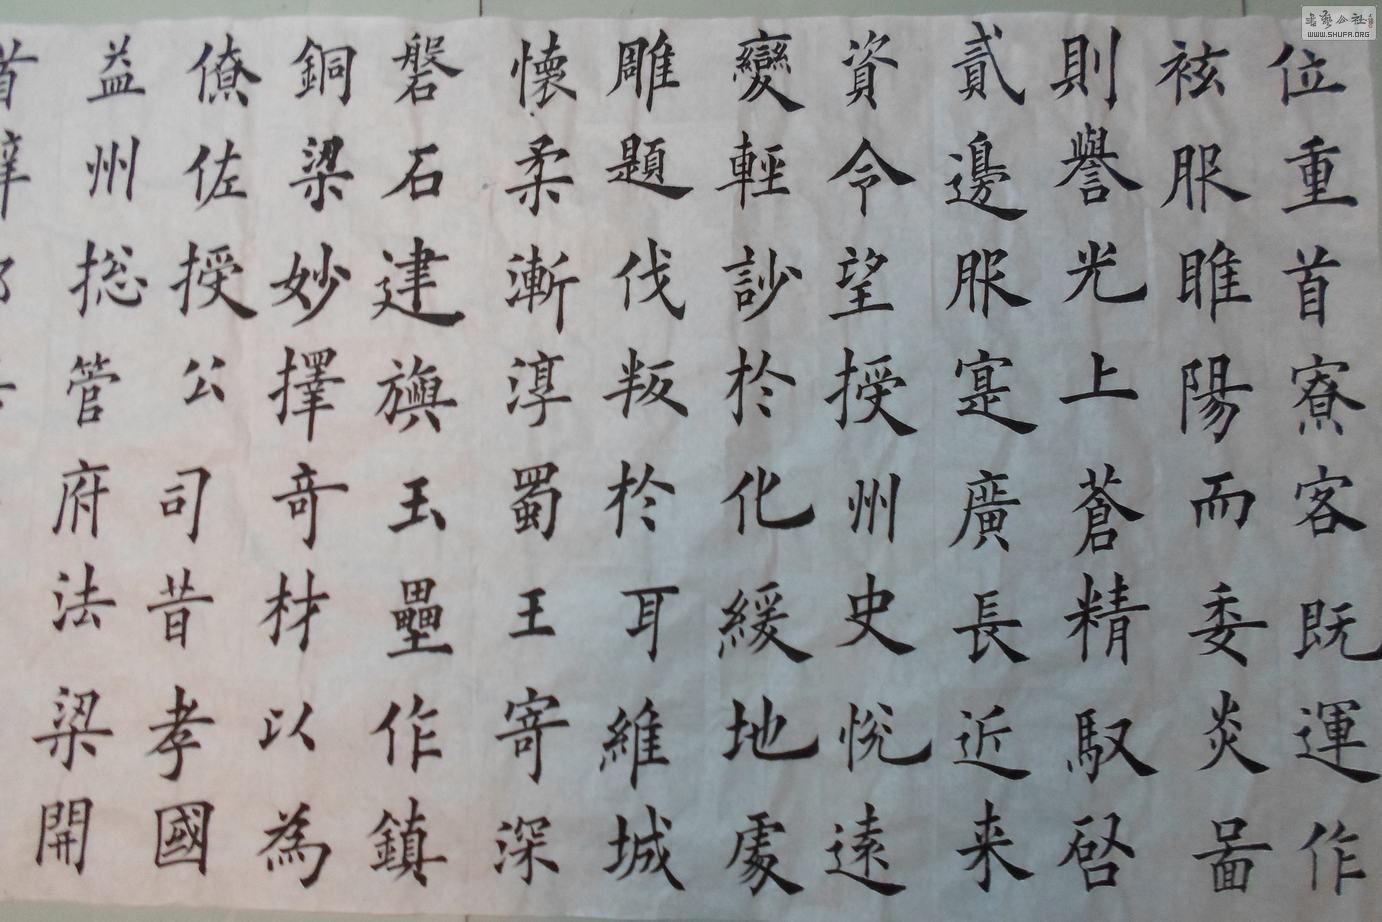 位重首寮客既運作
袨服睢陽而委炎啚
則譽光上蒼精馭啓
貳邊服寔廣長近来
資令望授州史恱遠
變輕訬於化緩地處
雕題伐叛於耳維城
懷柔漸淳蜀王寄深
磐石建旟玉壘作鎮
銅梁妙擇竒材以為
僚佐授公司昔孝國
益州揔管府法梁開
首
書艺公社
WWW.SHUFA.ORG